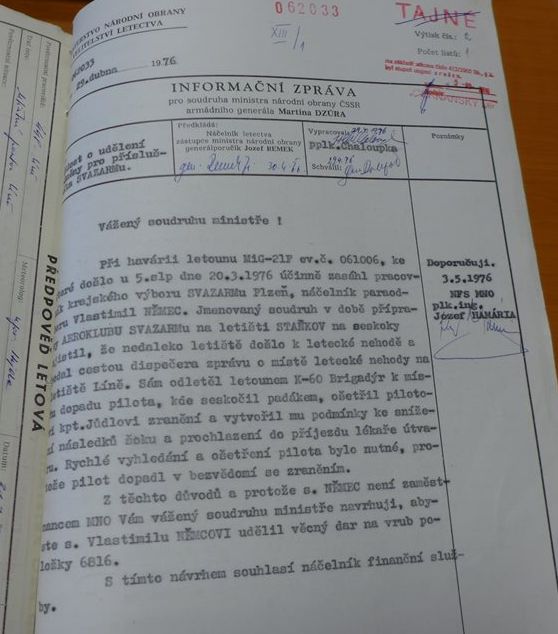 062033
XIII/1
TAJNE
Výtisk čís.: 2
Počet listů: 1
MINISTERSTVO NÁRODNÍ OBRANY
VELITELSTVÍ LETECTVA
29.dubna 1976.
INFORMAČNÍ ZPRÁVA
pro soudruha ministra národní obrany ČSSR
armádního generála Martina DZÚRA
o udělení
pro přísluš-
SVAZARMu.
Předkládá:
Náčelník letectva
zástupce ministra národní obrany
generálporučík Jozef REMEK
Vypracoval:
pplk.Chaloupka
Schválil:
Poznámky
Vážený soudruhu ministře !
Při havárii letounu MiG-21F ev.č. 061006, ke
které došlo u 5.slp dne 20.3.1976 účinně zasáhl pracov-
ník krajského výboru SVAZARMu Plzeň, náčelník paraod-
boru Vlastimil NĚMEC. Jmenovaný soudruh v době přípra-
AEROKLUBU SVAZARMu na letišti STAŇKOV na seskoky
zjistil, že nedaleko letiště došlo k letecké nehodě a
podal cestou dispečera zprávu o místě letecké nehody na
letiště Líně. Sám odletěl letounem K-60 Brigadýr k mís-
tu dopadu pilota, kde seskočil padákem, ošetřil piloto-
vi kpt.Jůdlovi zranění a vytvořil mu podmínky ke sníže-
ní následků šoku a prochlazení do příjezdu lékaře útva-
ru. Rychlé vyhledání a ošetření pilota bylo nutné, pro-
tože pilot dopadl v bezvědomí se zraněním.
Z těchto důvodů a protože s. NĚMEC není zaměst-
nancem MNO Vám vážený soudruhu ministře navrhuji, aby-
ste s. Vlastimilu NĚMCOVI udělil věcný dar na vrub po-
ložky 6816.
S tímto návrhem souhlasí náčelník finanční služ-
by.
Doporučuji.
3.5.1976
NFS MNO
plk.ing.
Jozef HAMÁRIA
PŘEDPOVĚĎ LETOVÁ
Datum: